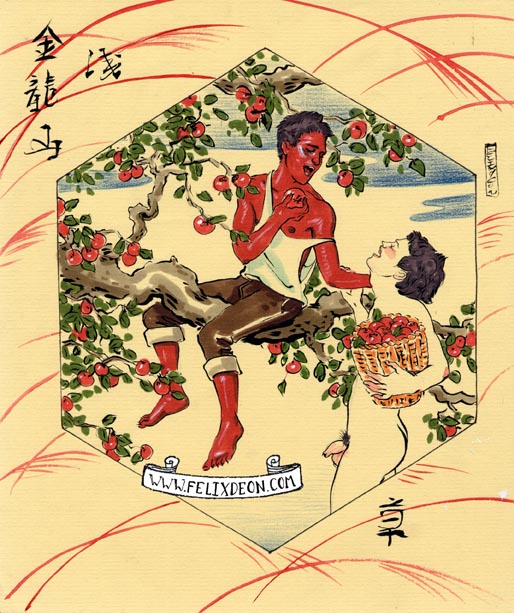 金龍山
浅
WWW.FELIXDEON.COM
草